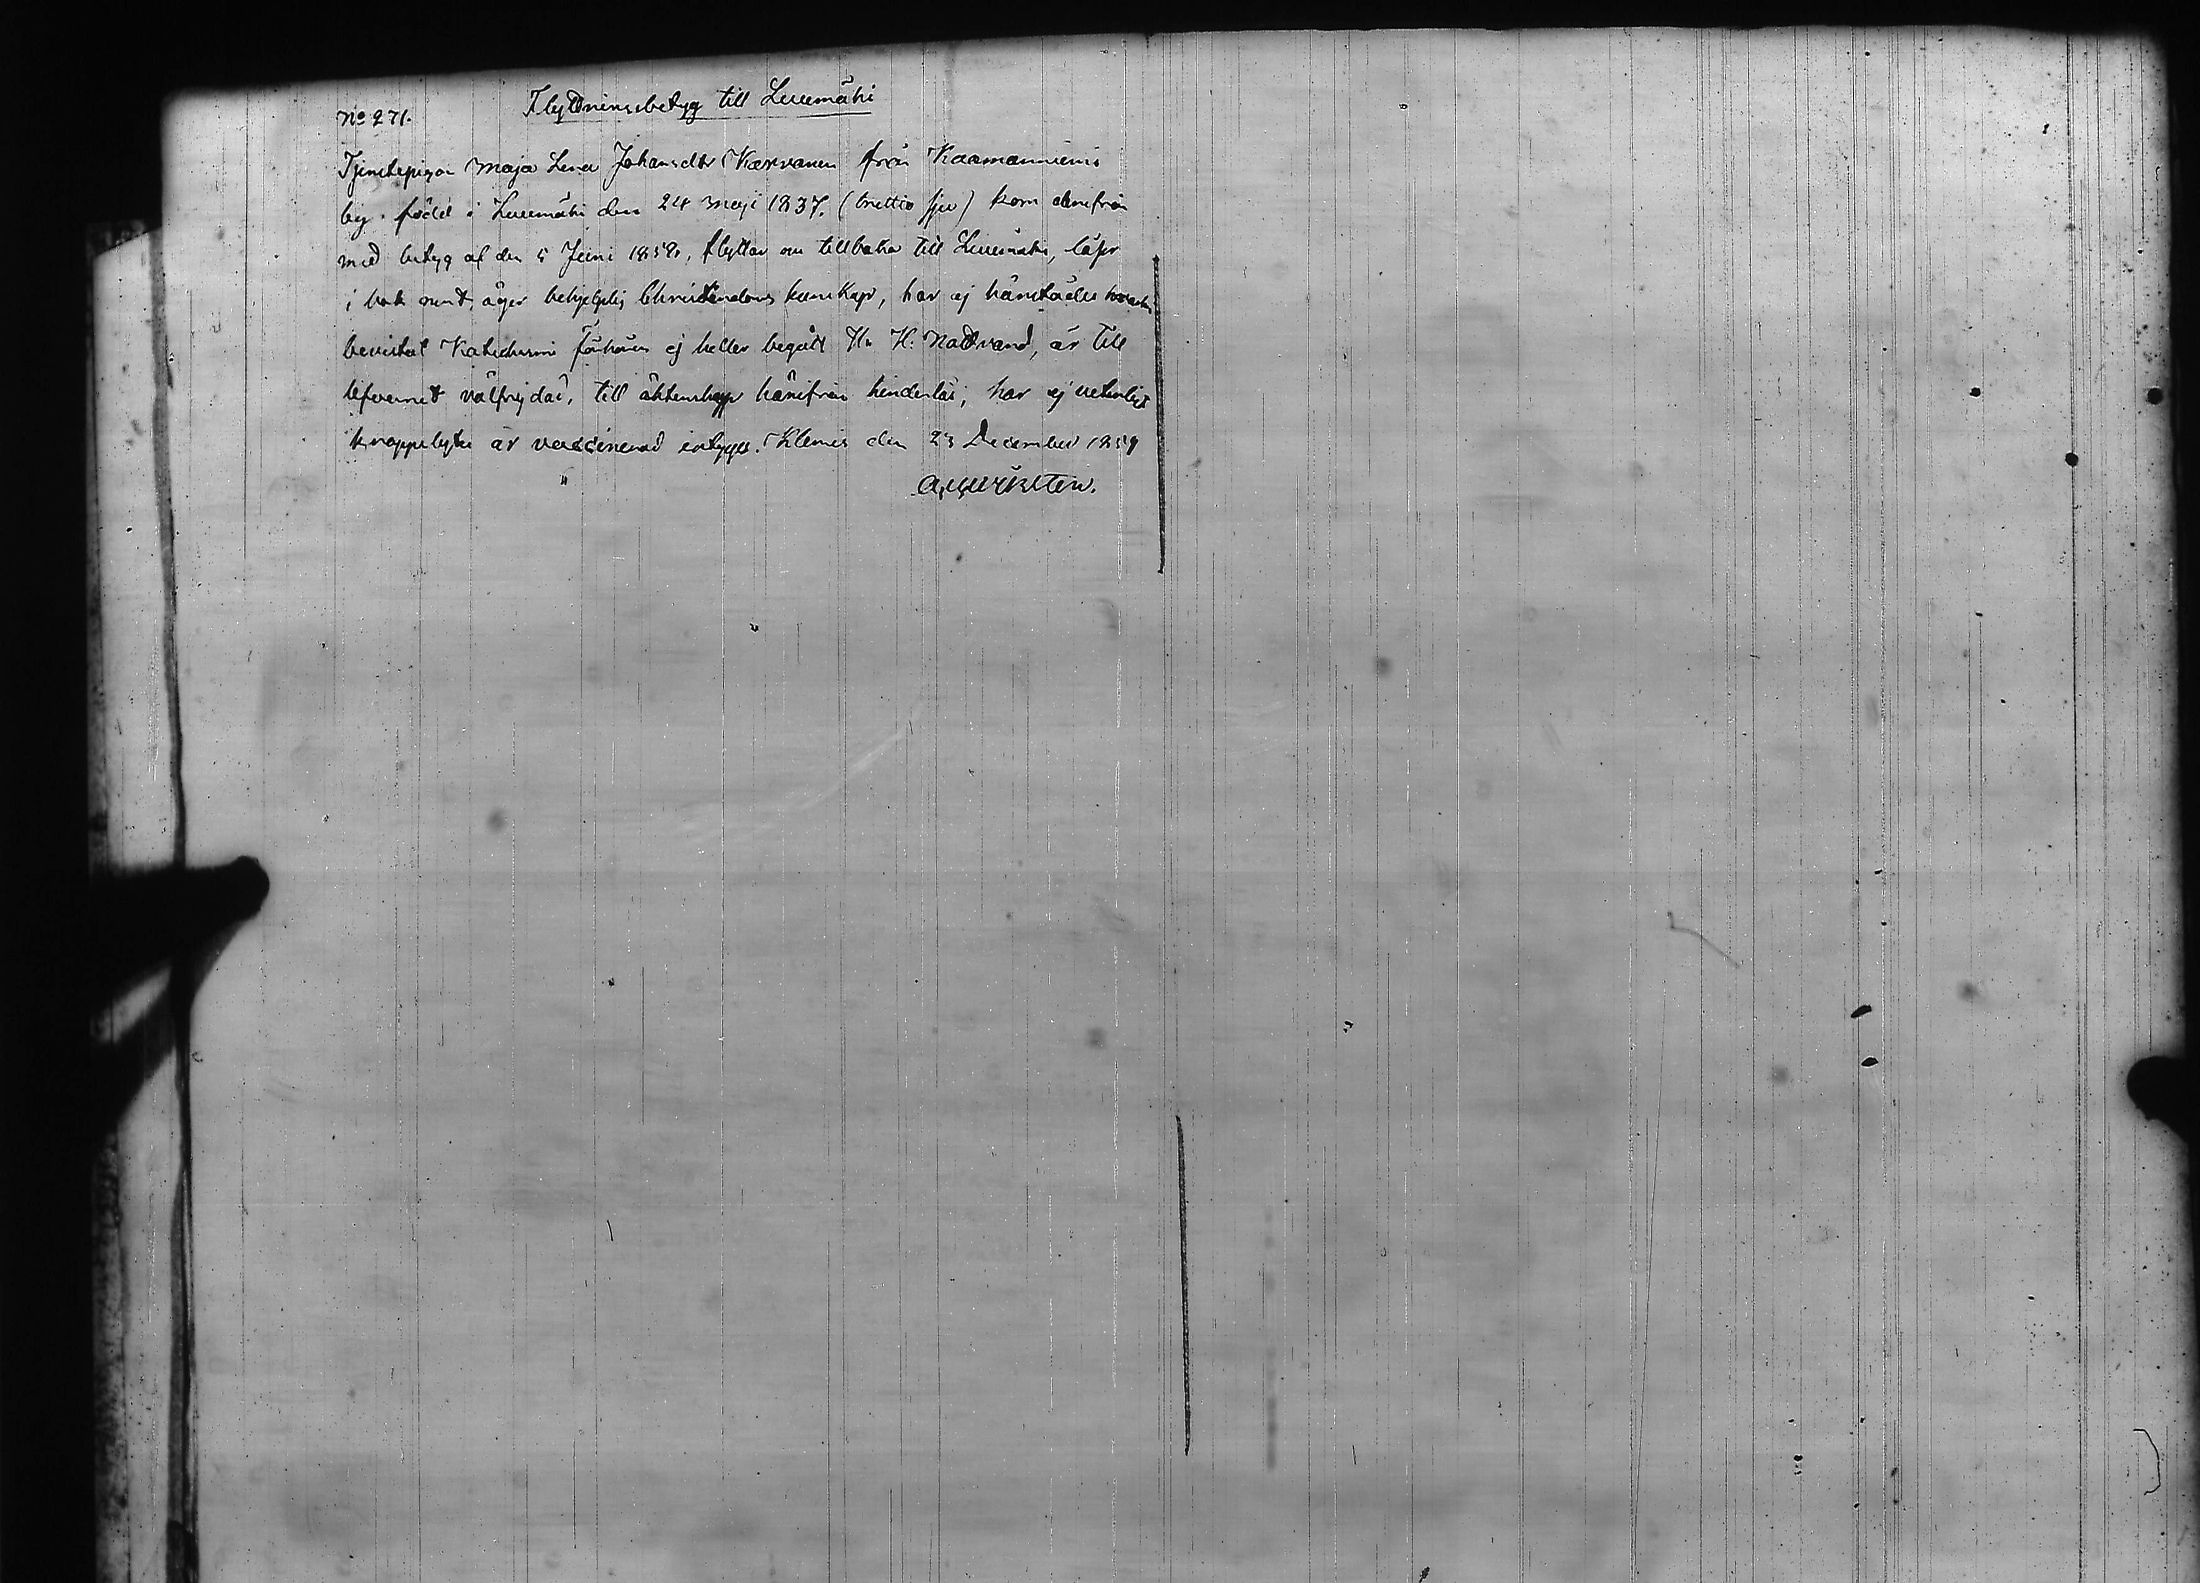 No 271.
Flyttningsbetyg till Luumäki
Tjenstepigan Maja Lena Johansdtr Karvanen från Kaamanniemi
by. född i Luumäki den 24 Maji 1837. (trettio sju) kom derifrån
med betyg af den 5 Juni 1859, flyttar nu tillbaka till Luumäki, läser
i bok rent, äger behjelplig Christendoms kunskap, har ej härstädes
bevistat Katichismi förhören ej heller begått H. H. Nattvard, är till
lefvernet välfrejdad, till äktenskap härifrån hinderlös, har ej veterligt
koppelyte är vaccinerad intygar. Klemis den 23 December 1859